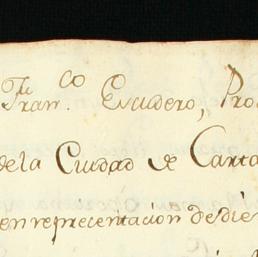 Fran.co Escudero, Pro
de la Ciudad de Carta
en representacion de die